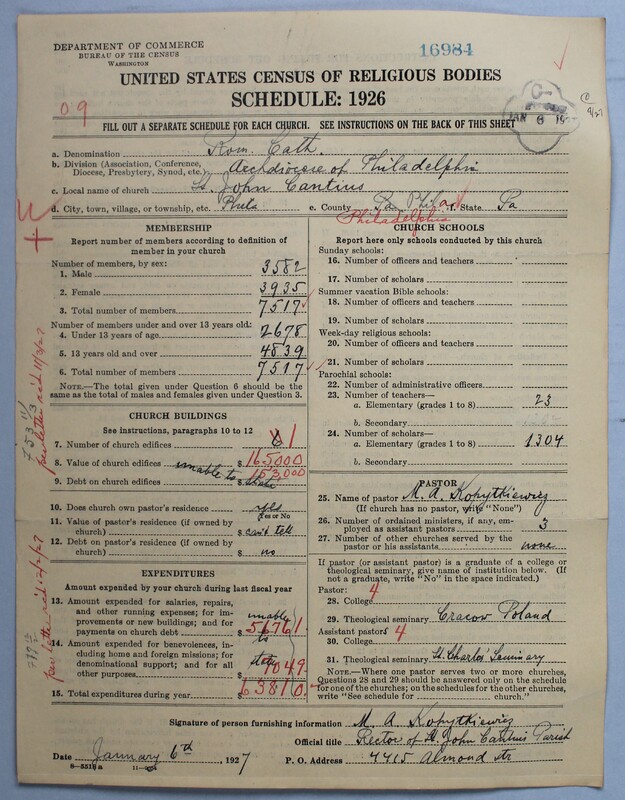 DEPARTMENT OF COMMERCE
BUREAU OF THE CENSUS
WASHINGTON
16984
UNITED STATES CENSUS OF RELIGIOUS BODIES
SCHEDULE: 1926
09
FILL OUT A SEPARATE SCHEDULE FOR EACH CHURCH. SEE INSTRUCTIONS ON THE BACK OF THIS SHEET
a. Denomination Rom. Cath.
b. Division (Association, Conference, Diocese, Presbytery, Synod, etc.) Archdiocese of Philadelphia
c. Local name of church St. John Cantius
d. City, town, village, or township, etc. Phila e. County Phila f. State Pa
Philadelphia
MEMBERSHIP
Report number of members according to definition of
member in your church
Number of members, by sex:
1. Male 3582
2. Female 3935
3. Total number of members 7517
Number of members under and over 13 years old:
4. Under 13 years of age 2678
5. 13 years old and over 4839
6. Total number of members 7517
NOTE.—The total given under Question 6 should be
the same as the total of males and females given under Question 3.
CHURCH BUILDINGS
See instructions, paragraphs 10 to 12
7. Number of church edifices 1
8. Value of church edifices $ 165000
unable to state
9. Debt on church edifices $ 153,000
10. Does church own pastor's residence yes
Yes or No
11. Value of pastor's residence (if owned by
church) $ can't tell
12. Debt on pastor's residence (if owned by
church) $ no
EXPENDITURES
Amount expended by your church during last fiscal year
13. Amount expended for salaries, repairs,
and other running expenses; for im-
provements or new buildings; and for
payments on church debt $ 56761
unable to state
14. Amount expended for benevolences, in-
cluding home and foreign missions; for
denominational support; and for all
other purposes 7049
15. Total expenditures during year $ 63810
CHURCH SCHOOLS
Report here only schools conducted by this church
Sunday schools:
16. Number of officers and teachers
17. Number of scholars
Summer vacation Bible schools:
18. Number of officers and teachers
19. Number of scholars
Week-day religious schools:
20. Number of officers and teachers
21. Number of scholars
Parochial schools:
22. Number of administrative officers
23. Number of teachers—
a. Elementary (grades 1 to 8) 23
b. Secondary
24. Number of scholars—
a. Elementary (grades 1 to 8) 1304
b. Secondary
PASTOR
25. Name of pastor M. A. Kopytkiewicz
(If church has no pastor, write "None")
26. Number of ordained ministers, if any, em-
ployed as assistant pastors 3
27. Number of other churches served by the
pastor or his assistants none
If pastor (or assistant pastor) is a graduate of a college or
theological seminary, give name of institution below. (If
not a graduate, write "No" in the space indicated.)
Pastor: 4
28. College
29. Theological seminary Cracow Poland
Assistant pastor: 4
30. College
31. Theological seminary St. Charles' Seminary
NOTE.—Where one pastor serves two or more churches,
Questions 28 and 29 should be answered only on the schedule
for one of the churches; on the schedules for the other churches,
write "See schedule for
Signature of person furnishing information M. A. Kopytkiewicz
Official title Rector of St. John Cantius Parish
Date January 6th, 1927 P. O. Address 4415 Almond str
8—5518 a